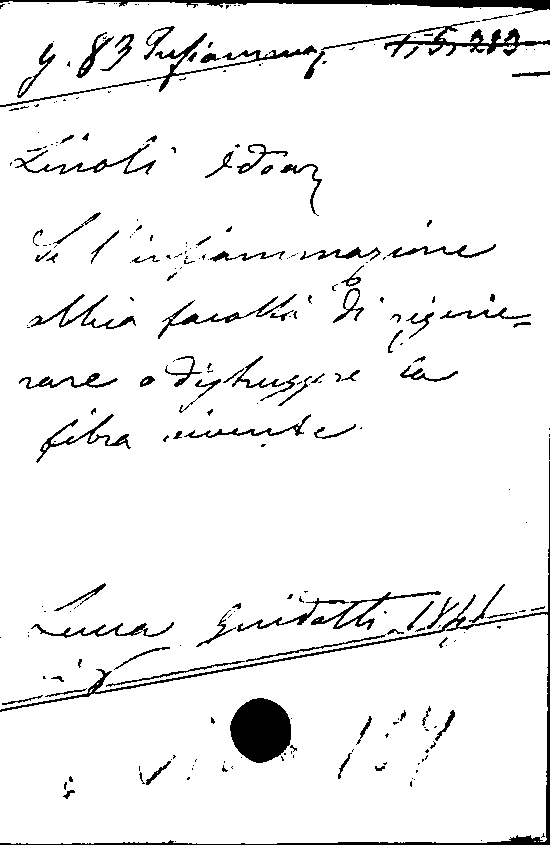 y. 83 Infiammaz. 1, 5, 283
Linoli Odoar
Se l'infiammazione
abbia facoltà di rigene-
rare o distruggere la
fibra vivente
Lucca Guidotti 1841
134